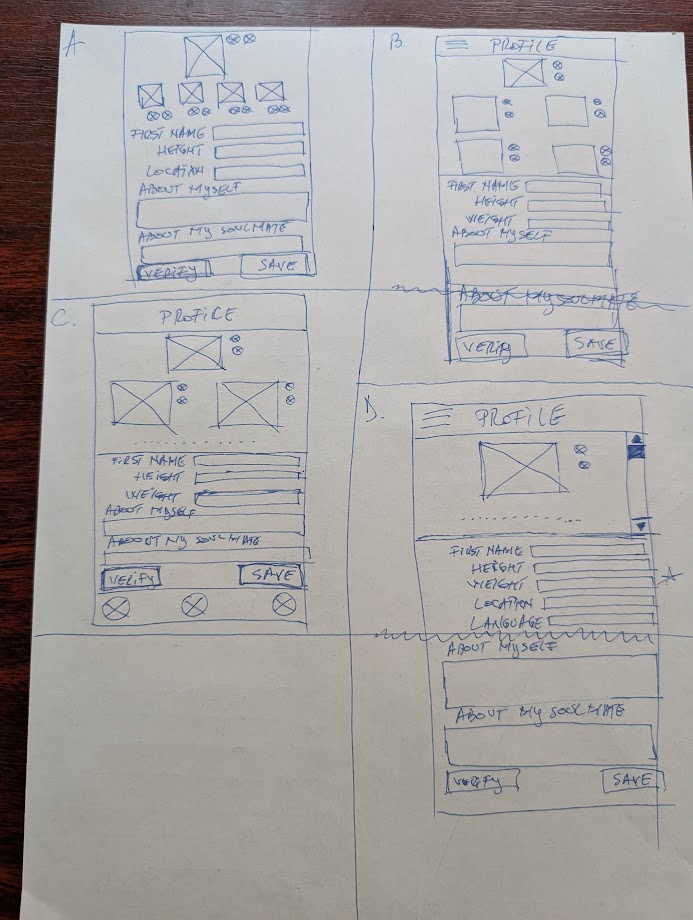 A.
FIRST NAME
HEIGHT
LOCATION
ABOUT MYSELF
ABOUT MY SOULMATE
VERIFY SAVE
B
PROFILE
FIRST NAME
HEIGHT
WEIGHT
ABOUT MYSELF
ABOUT MY SOULMATE
VERIFY SAVE
C.
PROFILE
FIRST NAME
HEIGHT
WEIGHT
ABOUT MYSELF
ABOUT MY SOULMATE
VERIFY SAVE
D.
PROFILE
FIRST NAME
HEIGHT
WEIGHT
LOCATION
LANGUAGE
ABOUT MYSELF
ABOUT MY SOULMATE
VERIFY SAVE